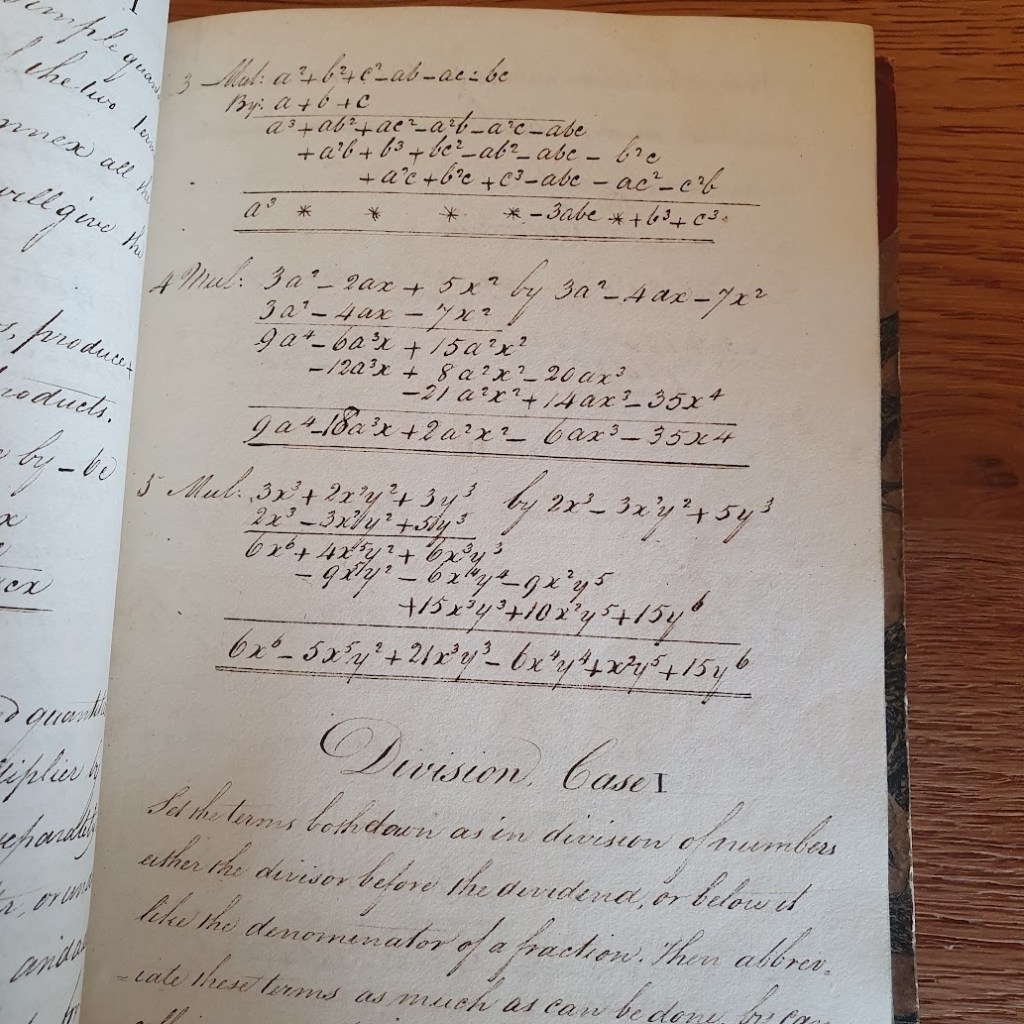 simple quan
the two ter
nnex all the
will give the
s, produce
roducts.
by - be
x
acx
d quantit
tiplier by
separately
and a
3 Mul: a² + b² + c² - ab - ac - bc
By: a + b + c
a³ + ab² + ac² - a²b - a²c - abc
+ a²b + b³ + bc² - ab² - abc - b²c
+ a²c + b²c + c³ - abc - ac² - c²b
a³ * * * * - 3abc * + b³ + c³.
4 Mul: 3a² - 2ax + 5x² by 3a² - 4ax - 7x²
3a² - 4ax - 7x²
9a⁴ - 6a³x + 15a²x²
- 12a³x + 8a²x² - 20ax³
- 21a²x² + 14ax³ - 35x⁴
9a⁴ - 18a³x + 2a²x² - 6ax³ - 35x4
5 Mul: 3x³ + 2x²y² + 3y³ by 2x³ - 3x²y² + 5y³
2x³ - 3x²y² + 5y³
6x⁶ + 4x⁵y² + 6x³y³
- 9x⁵y² - 6x⁴y⁴ - 9x²y⁵
+ 15x³y³ + 10x²y⁵ + 15y⁶
6x⁶ - 5x⁵y² + 21x³y³ - 6x⁴y⁴ + x²y⁵ + 15y⁶
Division, Case I
Set the terms both down as in division of numbers
either the divisor before the dividend, or below it
like the denominator of a fraction. Then abbrev=
=iate these terms as much as can be done, by can